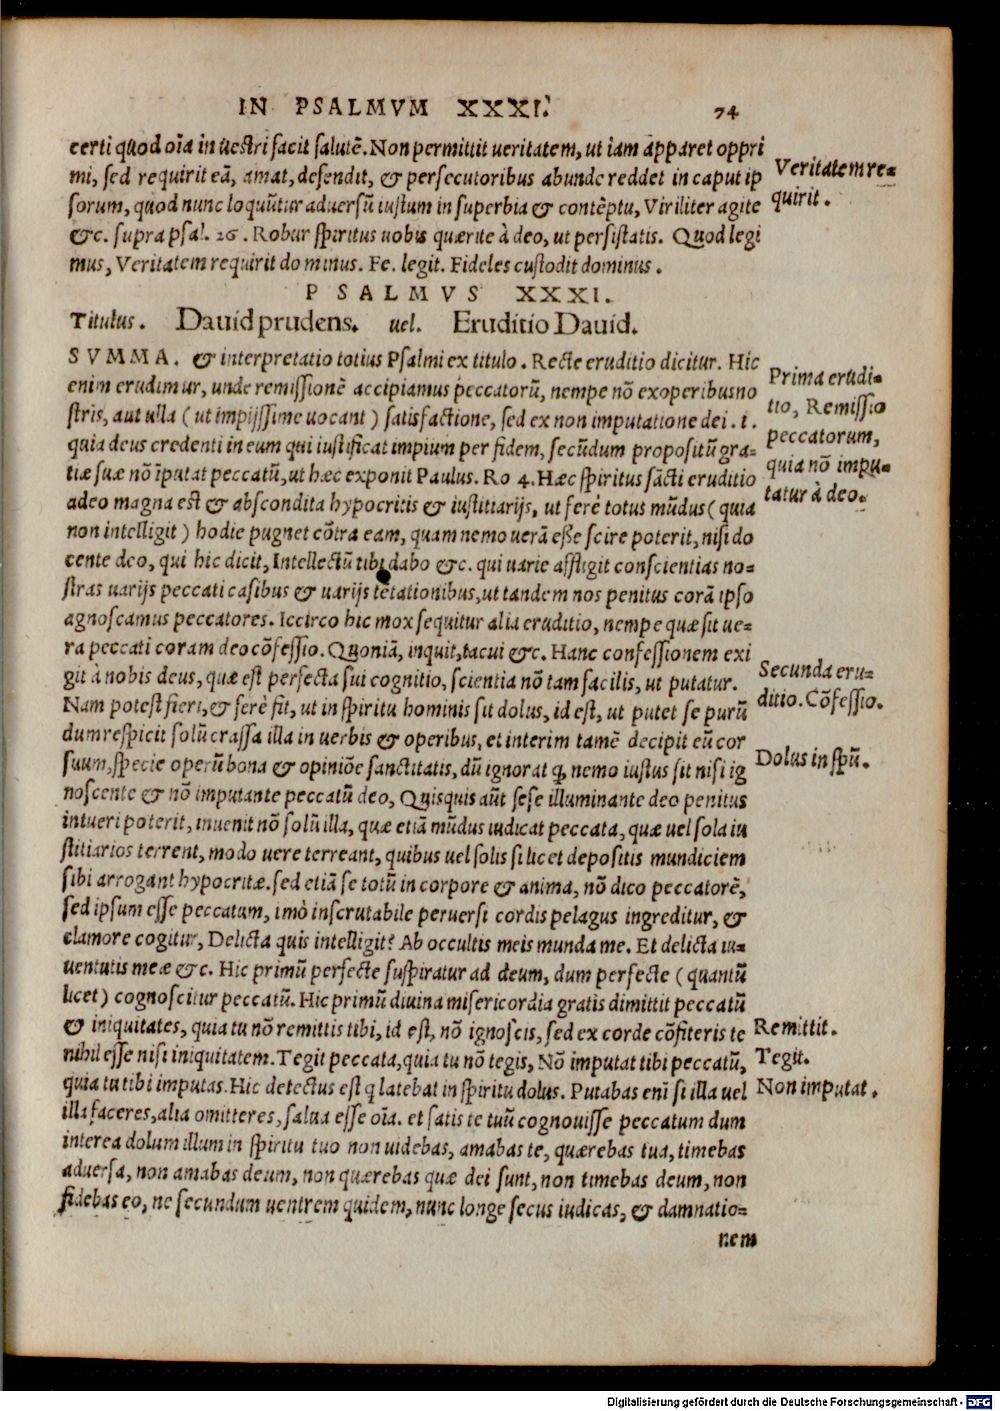 IN PSALMVM XXXI. 74
certi quod oīa in uestri facit salutē. Non permittit ueritatem, ut iam apparet oppri
mi, sed requirit eā, amat, defendit, & persecutoribus abunde reddet in caput ip
sorum, quod nunc loquūtur aduersū iustum in superbia & contēptu, Viriliter agite
&c. supra psal. 26. Robur spiritus uobis quærite à deo, ut persistatis. Quod legi
mus, Veritatem requirit dominus. Fe. legit. Fideles custodit dominus.
Veritatem re=
quirit.
PSALMVS XXXI.
Titulus. Dauid prudens. uel. Eruditio Dauid.
SVMMA. & interpretatio totius Psalmi ex titulo. Recte eruditio dicitur. Hic
enim erudimur, unde remissionē accipiamus peccatorū, nempe nō ex operibus no
stris, aut ulla (ut impijssime uocant) satisfactione, sed ex non imputatione dei .i.
quia deus credenti in eum qui iustificat impium per fidem, secūdum propositū gra=
tiæ suæ nō īputat peccatū, ut hæc exponit Paulus. Ro 4. Hæc spiritus sācti eruditio
adeo magna est & abscondita hypocritis & iustitiarijs, ut ferè totus mūdus (quia
non intelligit) hodie pugnet cōtra eam, quam nemo uerā esse scire poterit, nisi do
cente deo, qui hic dicit, Intellectū tibi dabo &c. qui uarie affligit conscientias no=
stras uarijs peccati casibus & uarijs tētationibus, ut tandem nos penitus corā ipso
agnoscamus peccatores. Iccirco hic mox sequitur alia eruditio, nempe quæ sit ue=
ra peccati coram deo cōfessio. Quoniā, inquit, tacui &c. Hanc confessionem exi
git à nobis deus, quæ est perfecta sui cognitio, scientia nō tam facilis, ut putatur.
Nam potest fieri, & ferè fit, ut in spiritu hominis sit dolus, id est, ut putet se purū
dum respicit solū crassa illa in uerbis & operibus, et interim tamē decipit eū cor
suum, specie operū bona & opiniōe sanctitatis, dū ignorat ꝙ nemo iustus sit nisi ig
noscente & nō imputante peccatū deo, Quisquis aūt sese illuminante deo penitus
intueri poterit, inuenit nō solū illa, quæ etiā mūdus iudicat peccata, quæ uel sola iu
stitiarios terrent, modo uere terreant, quibus uel solis si licet depositis mundiciem
sibi arrogant hypocritæ. sed etiā se totū in corpore & anima, nō dico peccatorē,
sed ipsum esse peccatum, imò inscrutabile peruersi cordis pelagus ingreditur, &
clamore cogitur, Delicta quis intelligit? Ab occultis meis munda me. Et delicta iu=
uentutis meæ &c. Hic primū perfecte suspiratur ad deum, dum perfecte (quantū
licet) cognoscitur peccatū. Hic primū diuina misericordia gratis dimittit peccatū
& iniquitates, quia tu nō remittis tibi, id est, nō ignoscis, sed ex corde cōfiteris te
nihil esse nisi iniquitatem. Tegit peccata, quia tu nō tegis, Nō imputat tibi peccatū,
quia tu tibi imputas. Hic detectus est q latebat in spiritu dolus. Putabas enī si illa uel
illa faceres, alia omitteres, salua esse oīa. et satis te tuū cognouisse peccatum dum
interea dolum illum in spiritu tuo non uidebas, amabas te, quærebas tua, timebas
aduersa, non amabas deum, non quærebas quæ dei sunt, non timebas deum, non
fidebas eo, ne secundum uentrem quidem, nunc longe secus iudicas, & damnatio=
nem
Prima erudi=
tio, Remissio
peccatorum,
quia nō impu=
tatur à deo.
Secunda eru=
ditio. Cōfessio.
Dolus in spū.
Remittit.
Tegit.
Non imputat.
Digitalisierung gefördert durch die Deutsche Forschungsgemeinschaft - DFG